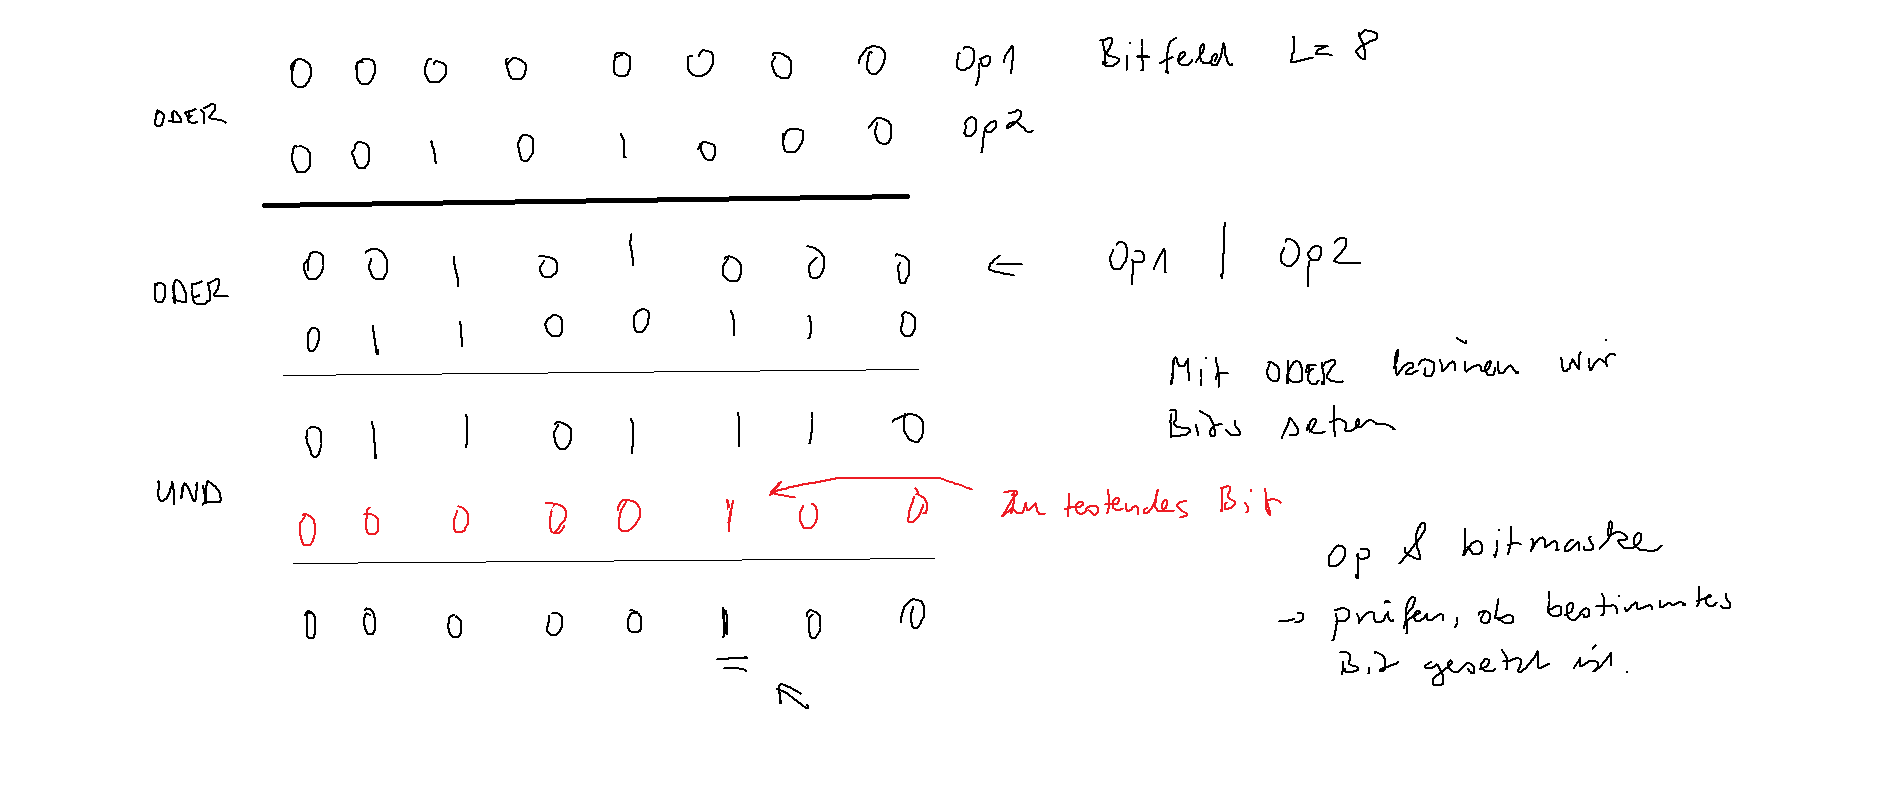 0 0 0 0 0 0 0 0 Op1 Bitfeld L= 8
ODER
0 0 1 0 1 0 0 0 Op2
0 0 1 0 1 0 0 0 ← Op1 | Op2
ODER
0 1 1 0 0 1 1 0
Mit ODER können wir
Bits setzen
0 1 1 0 1 1 1 0
UND
0 0 0 0 0 1 0 0 Zu testendes Bit
op & bitmaske
0 0 0 0 0 1 0 0
→ prüfen, ob bestimmtes
Bit gesetzt ist.